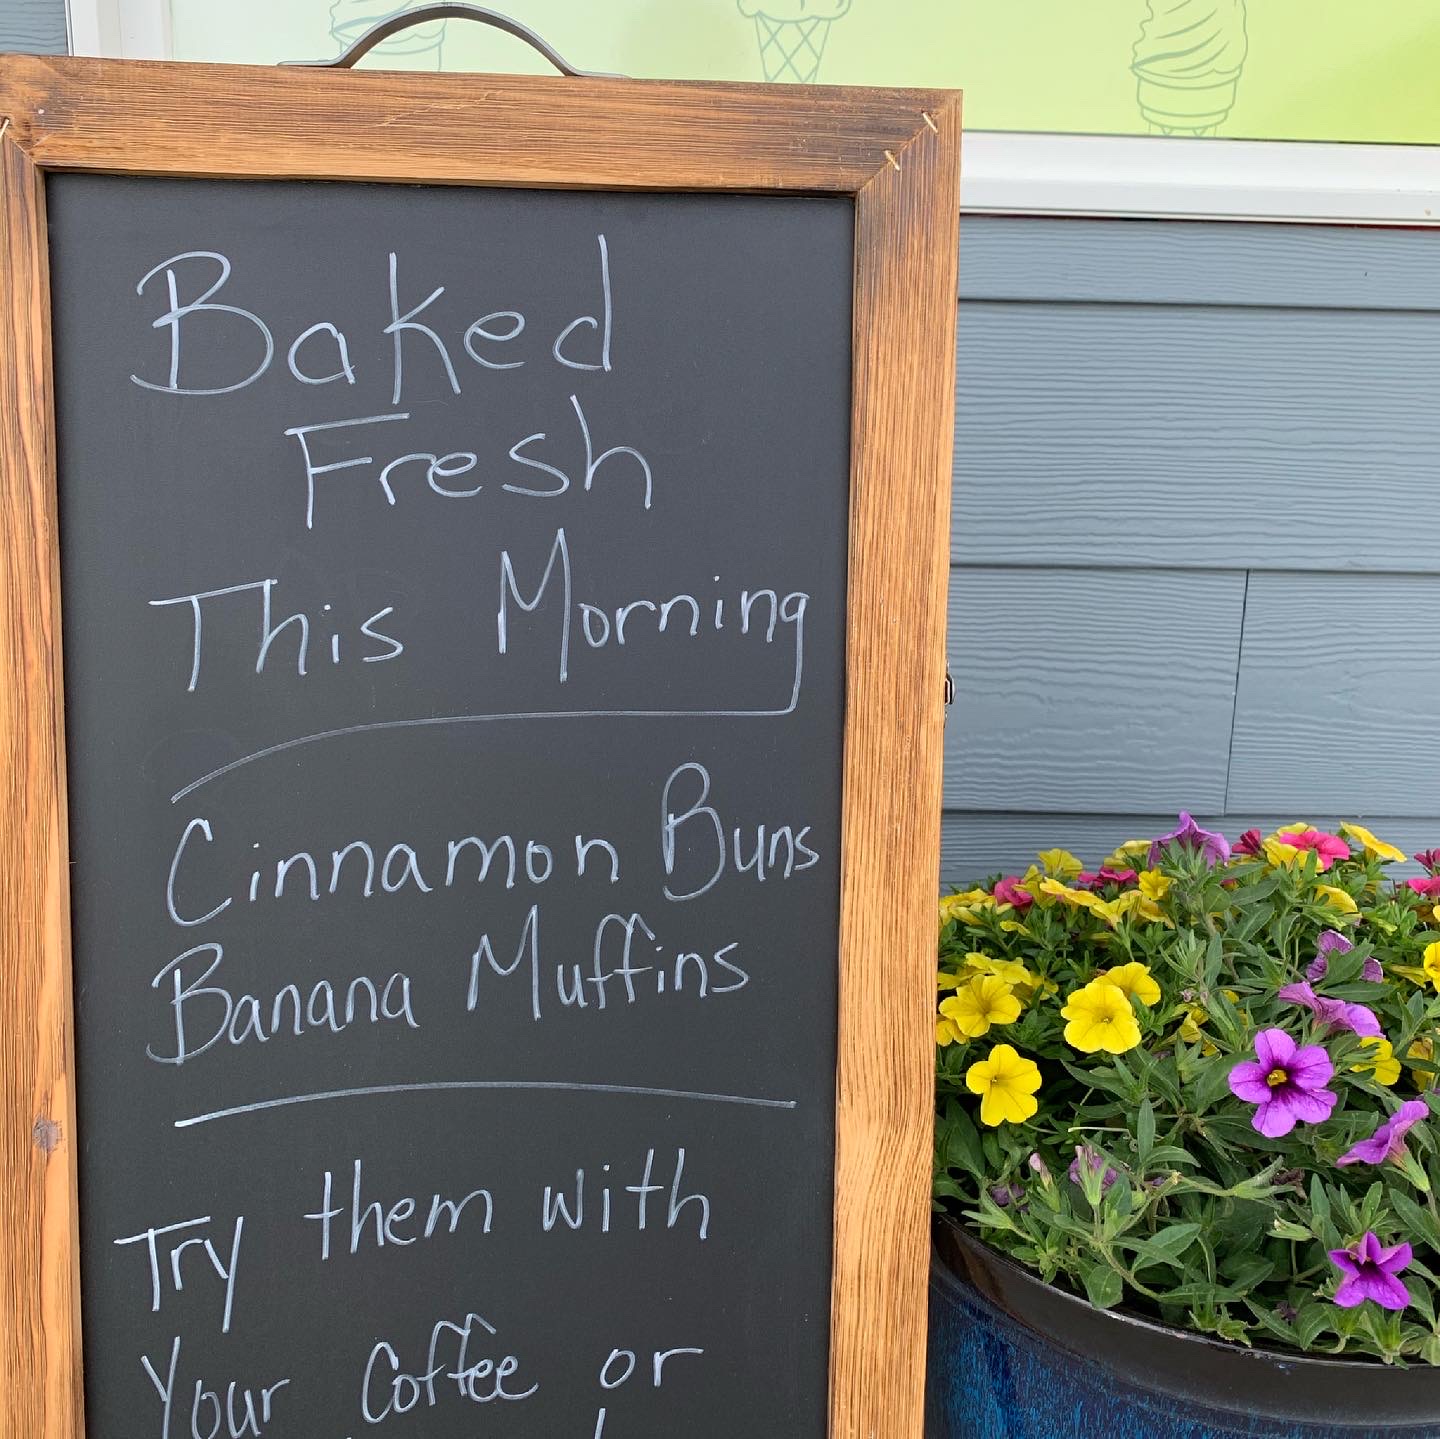 Baked
Fresh
This Morning
Cinnamon Buns
Banana Muffins
Try them with
Your Coffee or